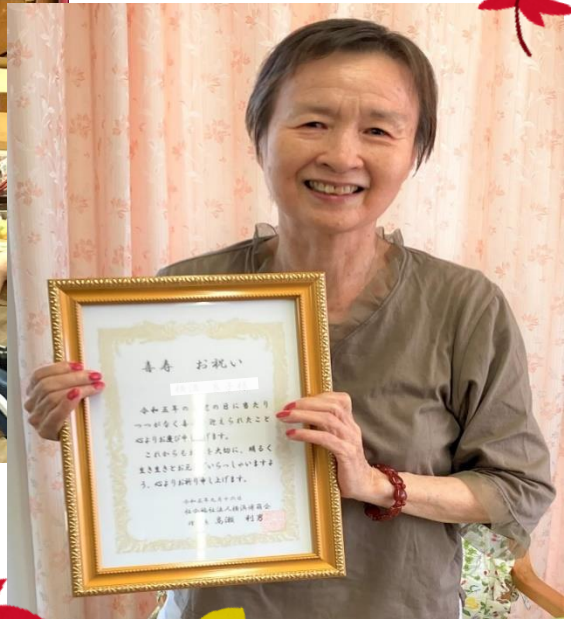 喜寿 お祝い
令和五年の 老の日に当たり
つつがなく喜 迎えられたこと
心よりお慶び申し上げます。
これからも を大切に、明るく
生き生きとお元 でいらっしゃいますよ
う、心よりお祈り申し上げます。
令和五年九月十六日
社会福祉法人横浜博萌会
高瀬 利男